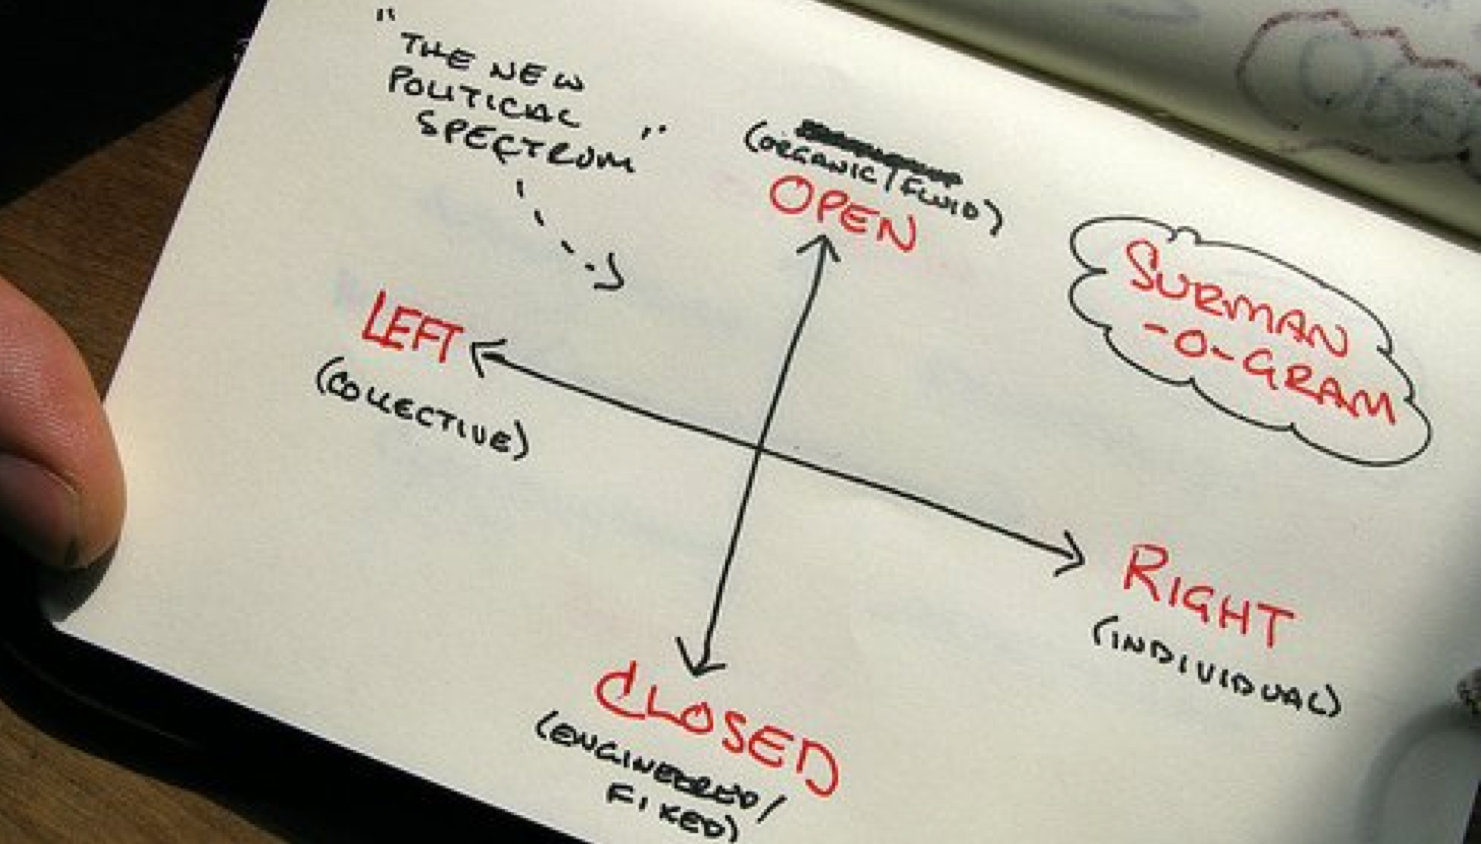 "THE NEW
POLITICAL
SPECTRUM"
(ORGANIC/FLUID)
OPEN
SURMAN
-O-GRAM
LEFT
(COLLECTIVE)
RIGHT
(INDIVIDUAL)
CLOSED
(ENGINEERED/
FIXED)